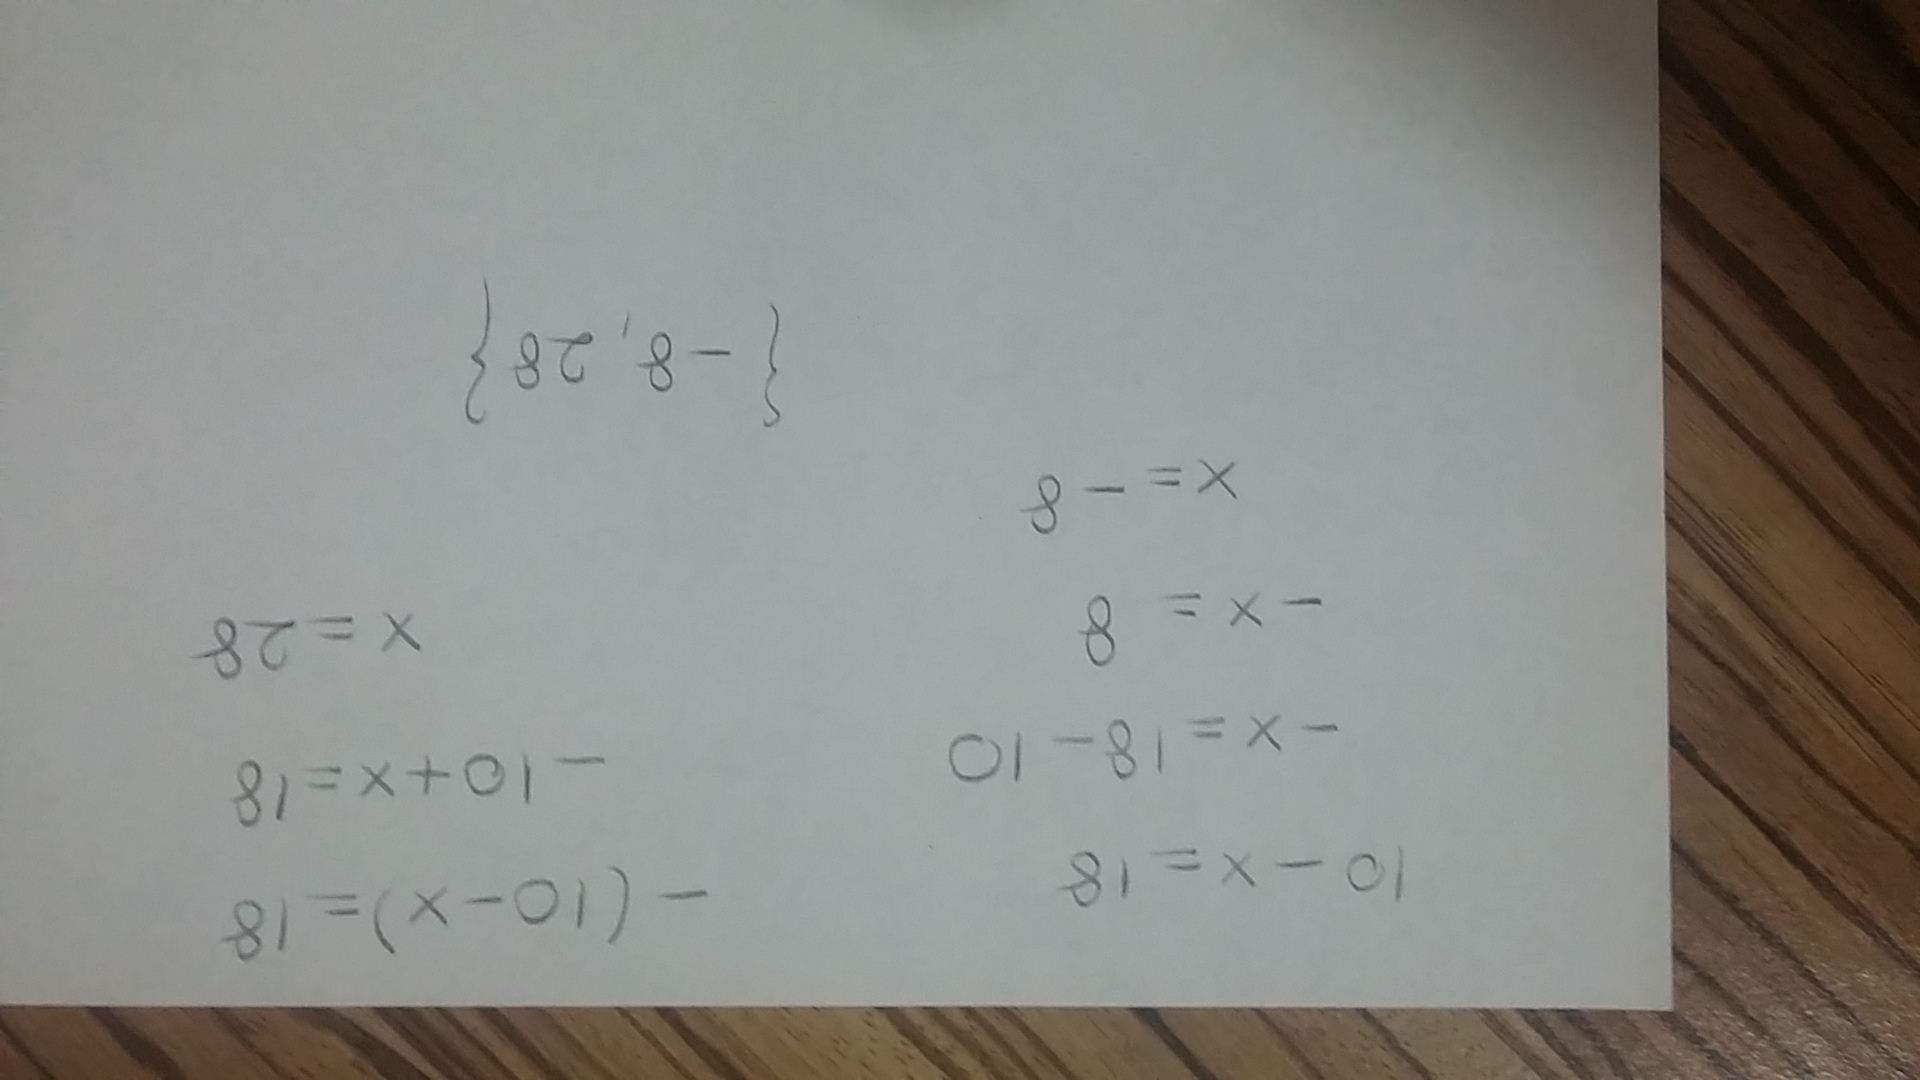 10-x=18
-x=18-10
-x=8
x=-8
-(10-x)=18
-10+x=18
x=28
{-8,28}